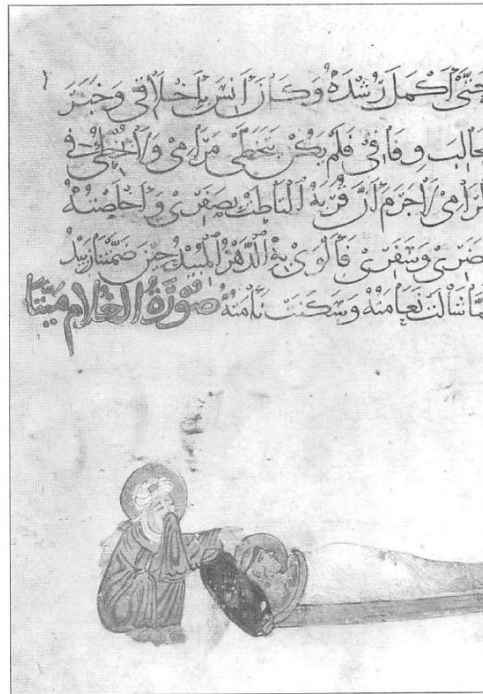 حَتَّى أَكْمَلَ رُشْدَهُ وَكَانَ أَنِسَ بِأَخْلَاقِي وَخَبَرَ
جَالِبَ وِفَاقِي فَلَمْ يَكُنْ يَتَخَطَّى مَرَامِي وَلَا يُخْطِئُ فِي
لمَرَامِي لَا جَرَمَ أَنَّ قُرَبَهُ الْتَاطَتْ بِصَفَرِي وَأَخْلَصْتُهُ
حَضَرِي وَسَفَرِي فَأَلْوَى بِهِ الدَّهْرُ المُبِيدُ حِينَ ضَمَّتْنَا زَبِيدُ
لَمَّا شَالَتْ نَعَامَتُهُ وَسَكَنَتْ نَأْمَتُهُ صُورَةُ الغُلَامِ مَيْتًا